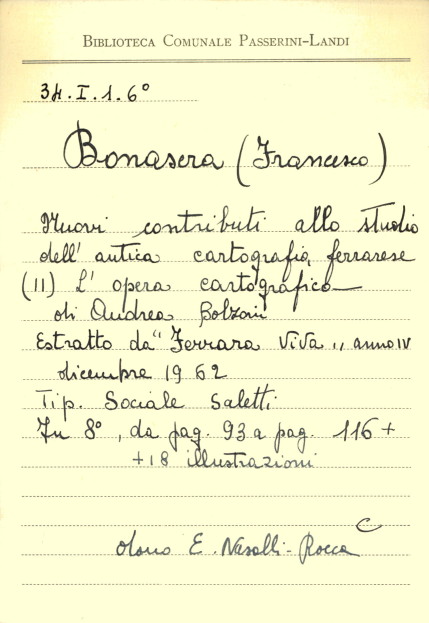 BIBLIOTECA COMUNALE PASSERINI-LANDI
34.I.1.6°
Bonasera (Francesco)
Nuovi contributi allo studio
dell' antica cartografia ferrarese
(II) L' opera cartografica
di Andrea Bolzoni
Estratto da "Ferrara Viva" anno IV
dicembre 1962
Tip. Sociale Saletti
In 8°, da pag. 93 a pag. 116 +
+ 18 illustrazioni
C
dono E. Nasalli-Rocca